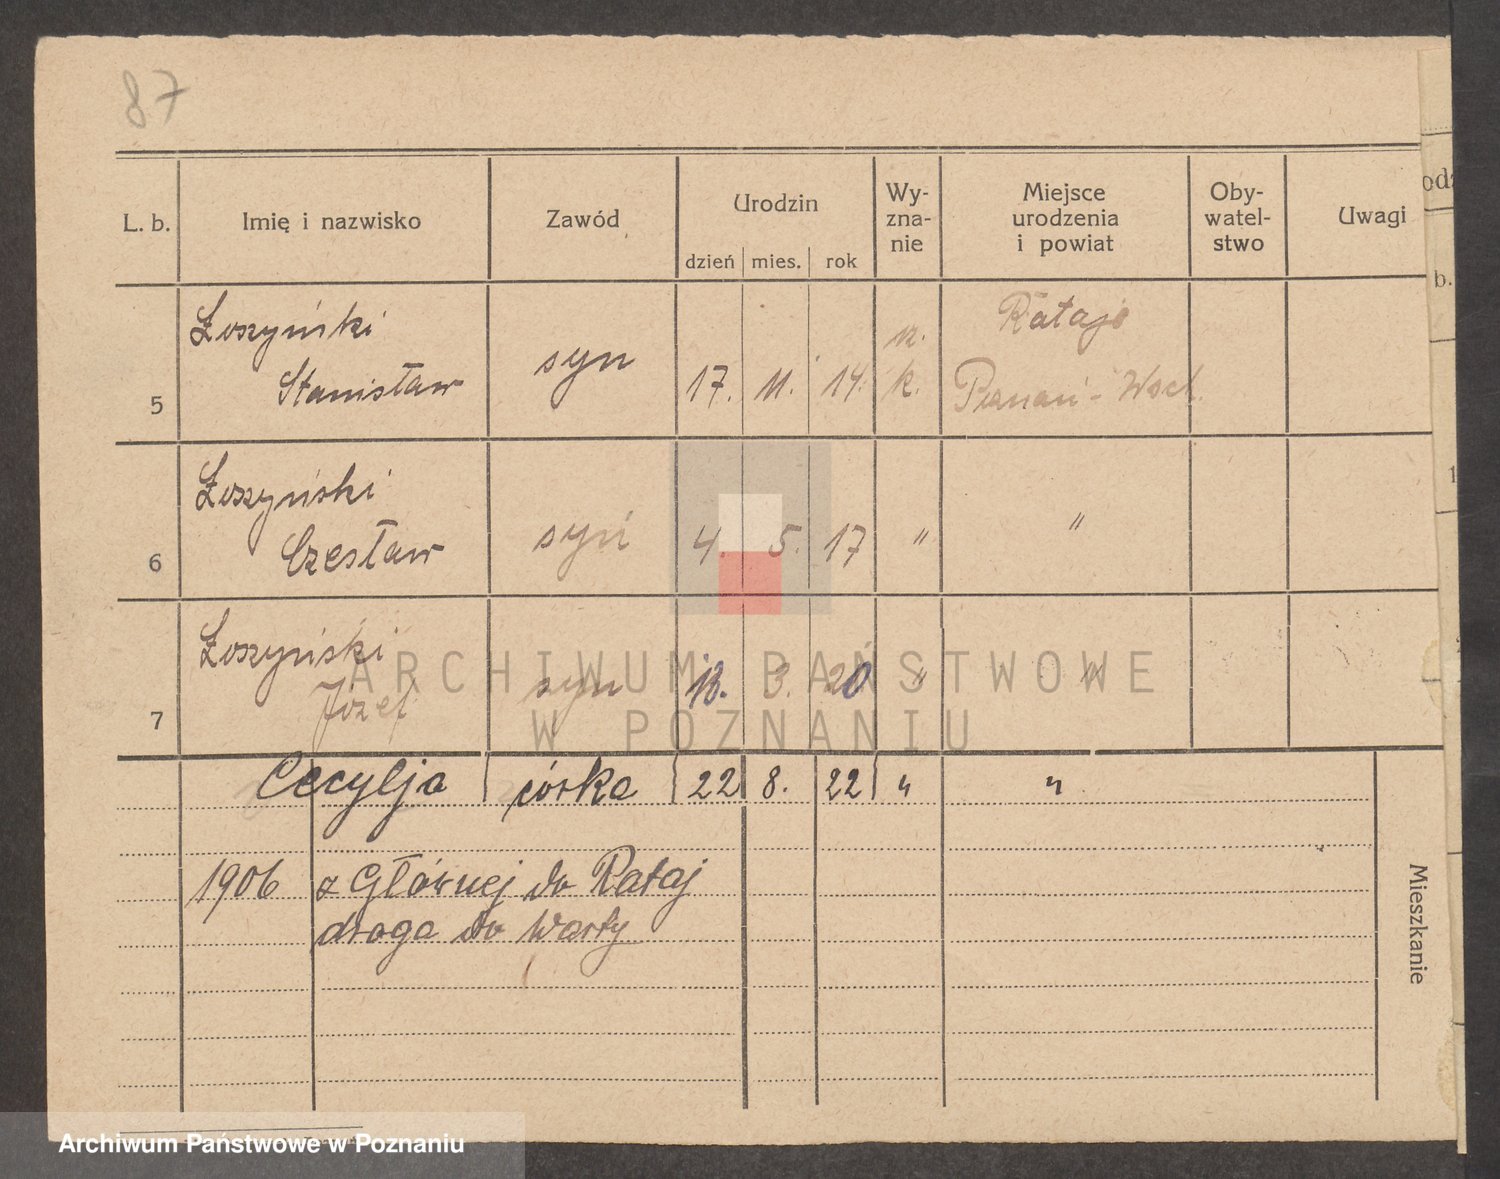 87
L. b. Imię i nazwisko Zawód Urodzin Wy-zna-nie Miejsce urodzenia i powiat Oby-watel-stwo Uwagi
dzień mies. rok
5 Łoszyński Stanisław syn 17. 11. 14. r. k. Rataje Poznań - Wsch.
6 Łoszyński Czesław syn 4. 5. 17 " "
7 Łoszyński Józef syn 13. 3. 20 " "
Cecylja córka 22 8. 22 " "
1906 z Głównej do Rataj
droga do Warty
Mieszkanie
ARCHIWUM PAŃSTWOWE
W POZNANIU
Archiwum Państwowe w Poznaniu